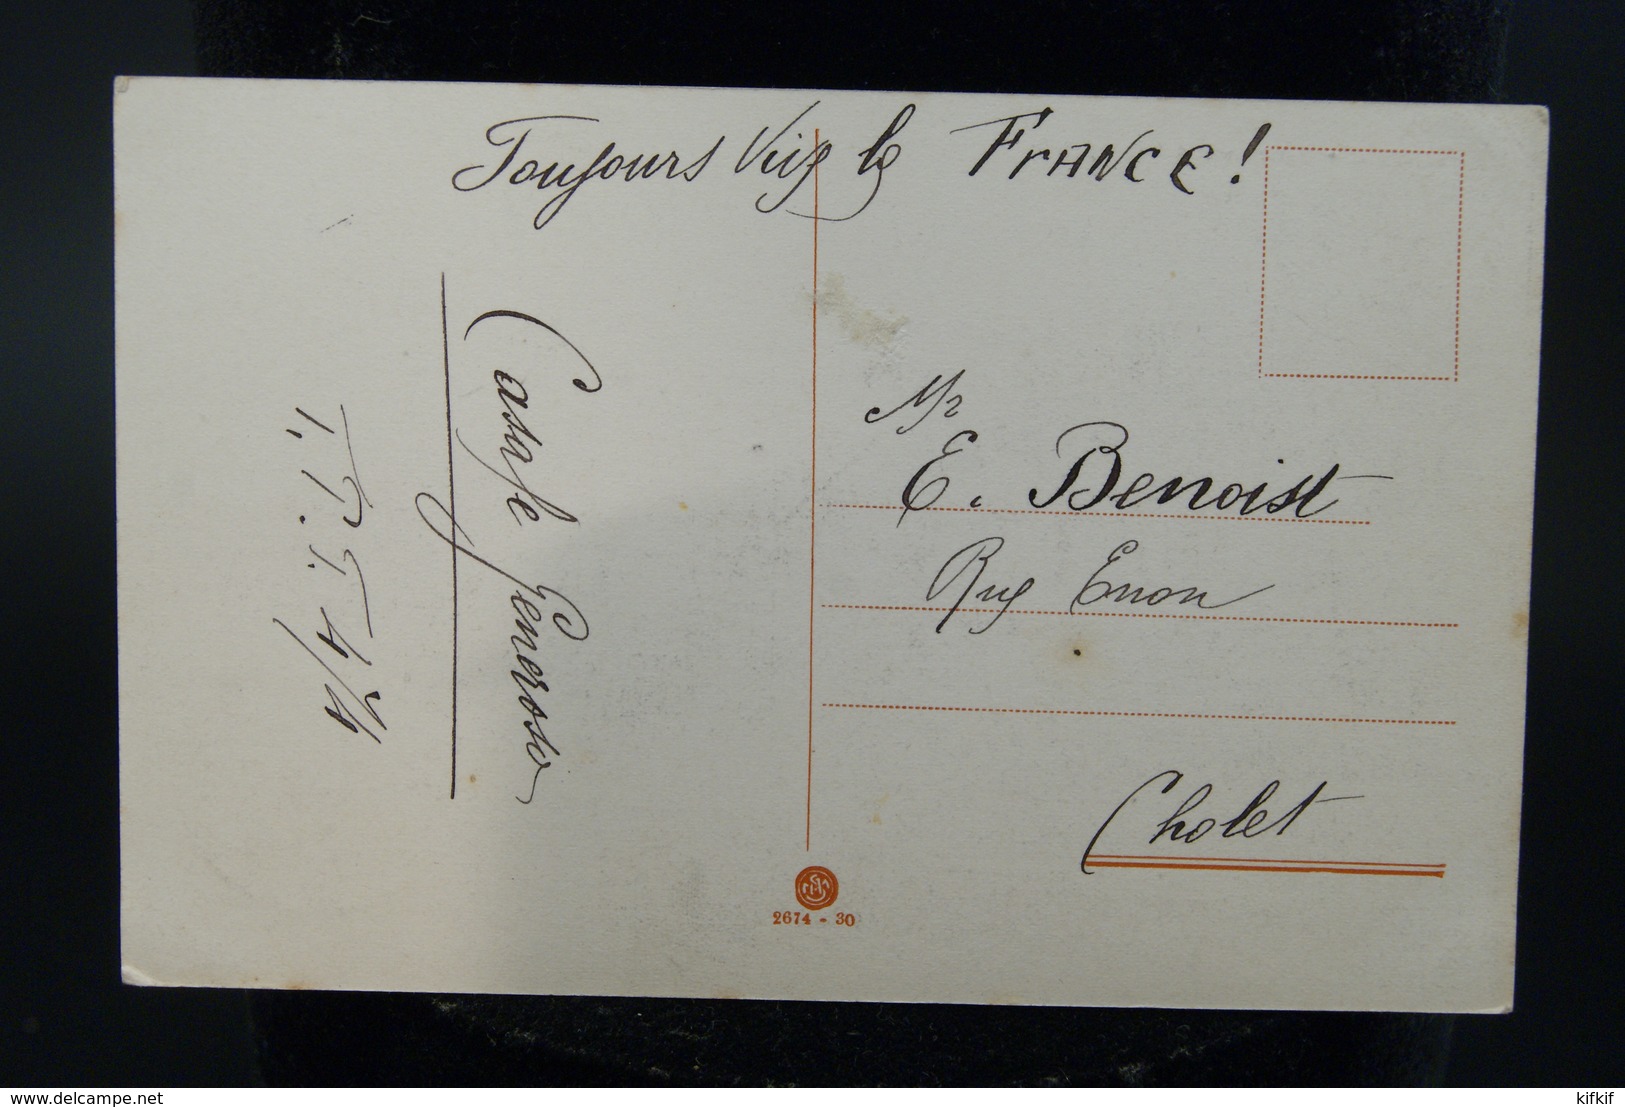 Toujours Vive la FRANCE!
Casale Generoso
Mr
E. Benoist
Rue Enon
Cholet
2674 - 30
www.delcampe.net
kifkif